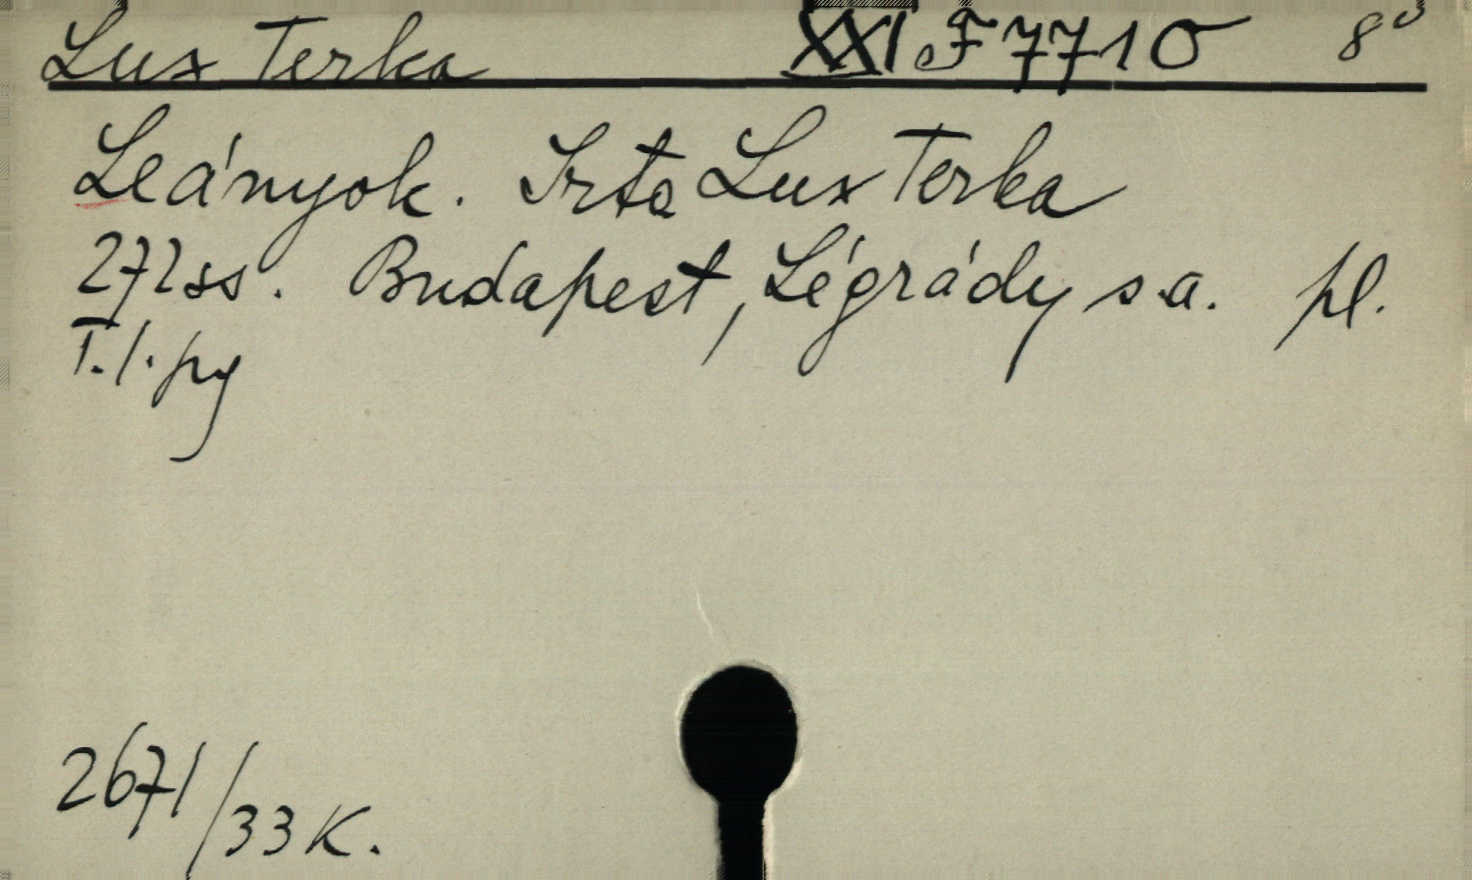 Lux Terka XXI.F7710 8°
Leányok. Irta Lux Terka
272ss. Budapest, Légrády s.a. pl.
T.l.py
2671/33K.